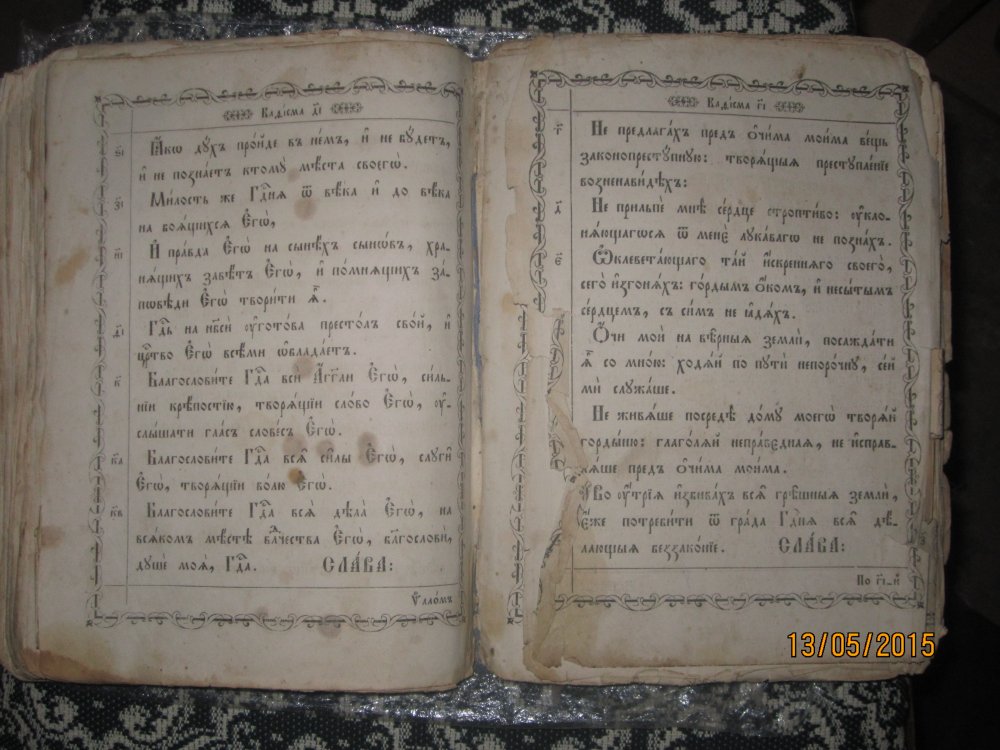 Каѳісма д҃і
ѕ҃і
Ꙗ҆́кѡ дꙋ́хъ про́йде въ не́мъ, и҆ не бꙋ́детъ,
и҆ не позна́етъ ктомꙋ̀ мѣ́ста своегѡ̀.
з҃і
Ми́лость же Гдⷭ҇ня ѿ вѣ́ка и҆ до вѣ́ка
на боѧ́щихсѧ Є҆гѡ̀,
и҃і
И҆ пра́вда Є҆гѡ̀ на сынѣ́хъ сынѡ́въ, хра-
нѧ́щихъ завѣ́тъ Є҆гѡ̀, и҆ по́мнѧщихъ за́-
пѡвѣди Є҆гѡ̀ твори́ти ѧ҆̀.
ѳ҃і
Гдⷭ҇ь на нб҃сѝ ᲂу҆гото́ва престо́лъ сво́й, и҆
црⷭ҇тво Є҆гѡ̀ всѣ́ми ѡ҆блада́етъ.
к҃
Благослови́те Гдⷭ҇а всѝ А҆́гг҃ли Є҆гѡ̀, си́ль-
нїи крѣ́постїю, творѧ́щїи сло́во Є҆гѡ̀, ᲂу҆-
слы́шати гла́съ слове́съ Є҆гѡ̀.
к҃а
Благослови́те Гдⷭ҇а всѧ̑ си̑лы Є҆гѡ̀, слꙋги̑
Є҆гѡ̀, творѧ́щїи во́лю Є҆гѡ̀.
к҃в
Благослови́те Гдⷭ҇а всѧ̑ дѣла̀ Є҆гѡ̀, на
всѧ́комъ мѣ́стѣ влⷣчества Є҆гѡ̀, благословѝ,
дꙋшѐ моѧ̀, Гдⷭ҇а. СЛА́ВА:
Ѱало́мъ
Каѳісма г҃і
г҃
Не предлага́хъ предъ ѻ҆чи́ма мои́ма ве́щь
законопрестꙋ́пнꙋю: творѧ́щыѧ престꙋпле́нїе
возненави́дѣхъ:
д҃
Не прильпѐ мнѣ̀ се́рдце стропти́во: ᲂу҆кло-
нѧ́ющагосѧ ѿ менє̀ лꙋка́вагѡ не позна́хъ.
є҃
Ѡ҆клевета́ющаго та́й и҆́скреннѧго своего̀,
сего̀ и҆згонѧ́хъ: го́рдымъ ѻ҆́комъ, и҆ несы́тымъ
се́рдцемъ, съ си́мъ не ꙗ҆дѧ́хъ.
Ѻ҆́чи моѝ на вѣ̑рныѧ землѝ, посажда́ти
ѧ҆̀ со мно́ю: ходѧ́й по пꙋтѝ непоро́чнꙋ, се́й
мѝ слꙋжа́ше.
Не живѧ́ше посредѣ̀ до́мꙋ моегѡ̀ творѧ́й
горды́ню: глаго́лѧй непра́вєднаѧ, не и҆справ-
лѧ́ше предъ ѻ҆чи́ма мои́ма.
Во ᲂу҆́трїѧ и҆збива́хъ всѧ̑ грѣ́шныѧ землѝ,
є҆́же потреби́ти ѿ гра́да Гдⷭ҇нѧ всѧ̑ дѣ́-
лающыѧ беззако́нїе. СЛА́ВА:
По г҃і_й
13/05/2015